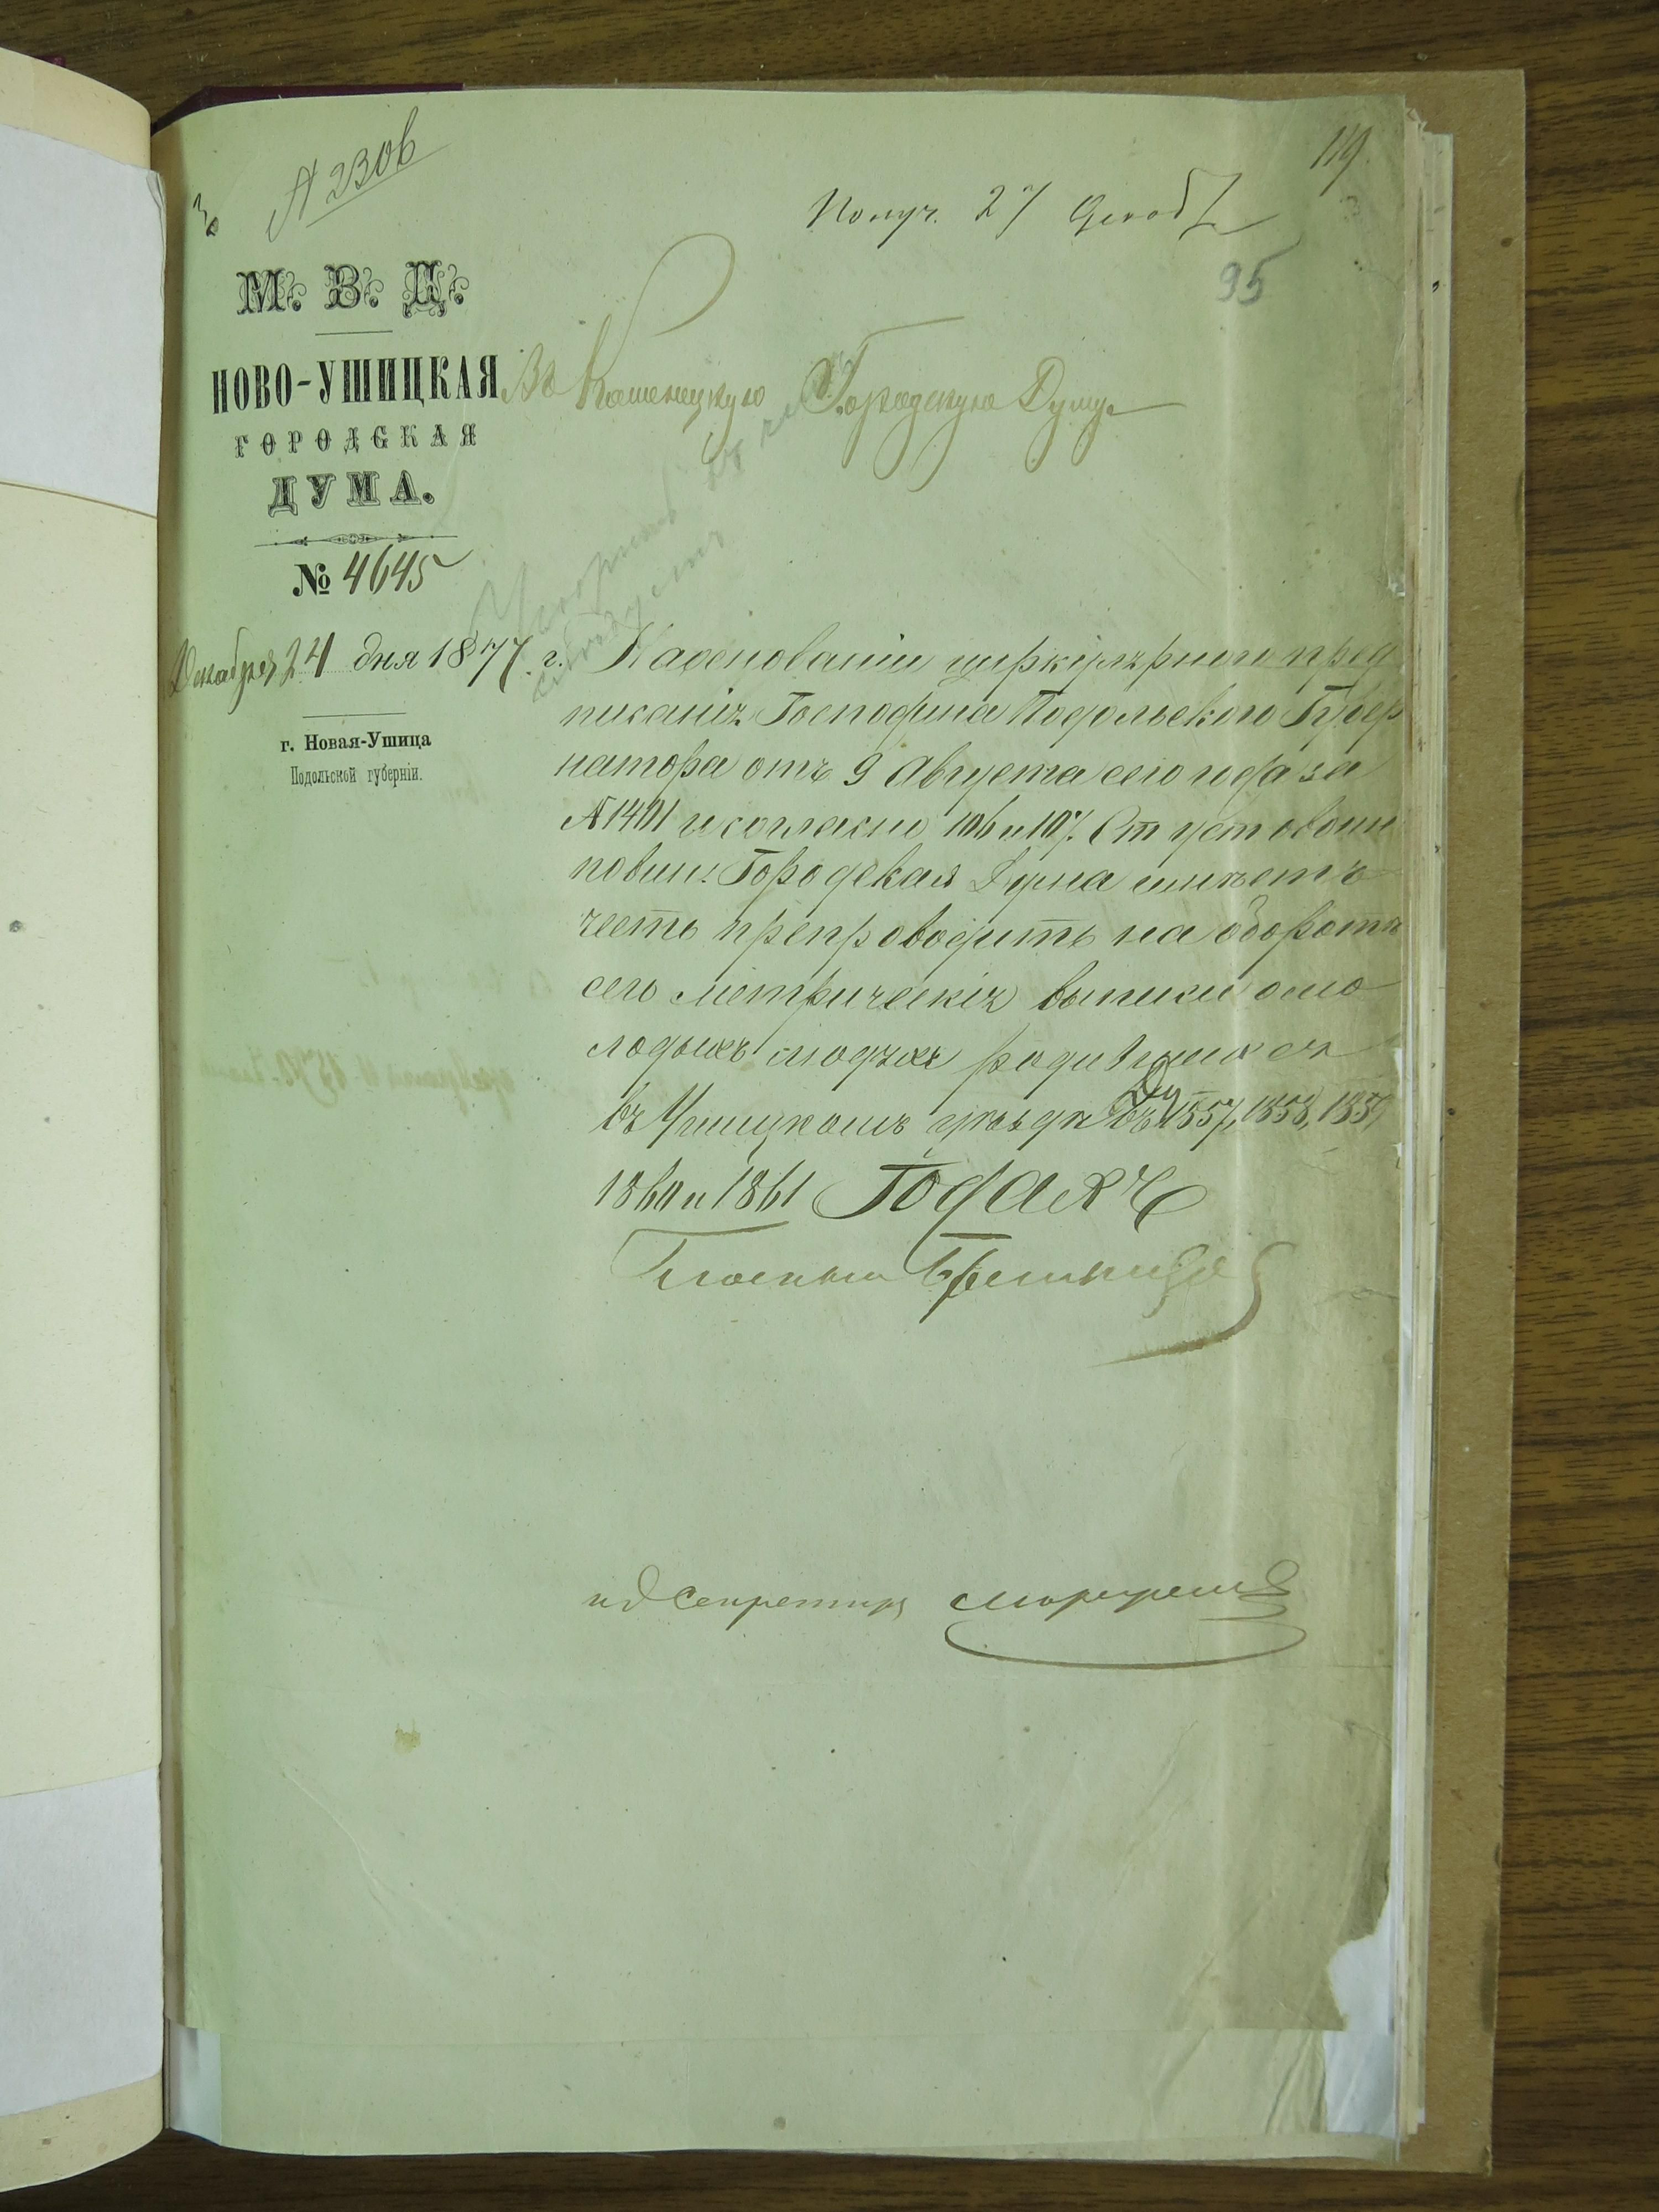 119.
№ 2306
Получ. 27 Декаб
95
М. В. Д.
НОВО-УШИЦКАЯ
ГОРОДСКАЯ
ДУМА.
№ 4645
Декабря 24 дня 1877 г.
г. Новая-Ушица
Подольской губерніи.
Въ Каменецкую Городскую Думу
На основаніи циркулярного пред
писанія Господина Подольского Губер
натора отъ 9 Августа сего года за
№ 1401 и согласно 106 и 107 Ст уст о воин
повин: Городская Дума имѣетъ
честь препроводить на оборотѣ
сего Метрическія выписи о мо
лодыхъ людяхъ родившихся
въ Ушицкомъ уѣздѣ въ 1857, 1858, 1859
1860 и 1861 Годахъ
Гласный
ид Секретаря